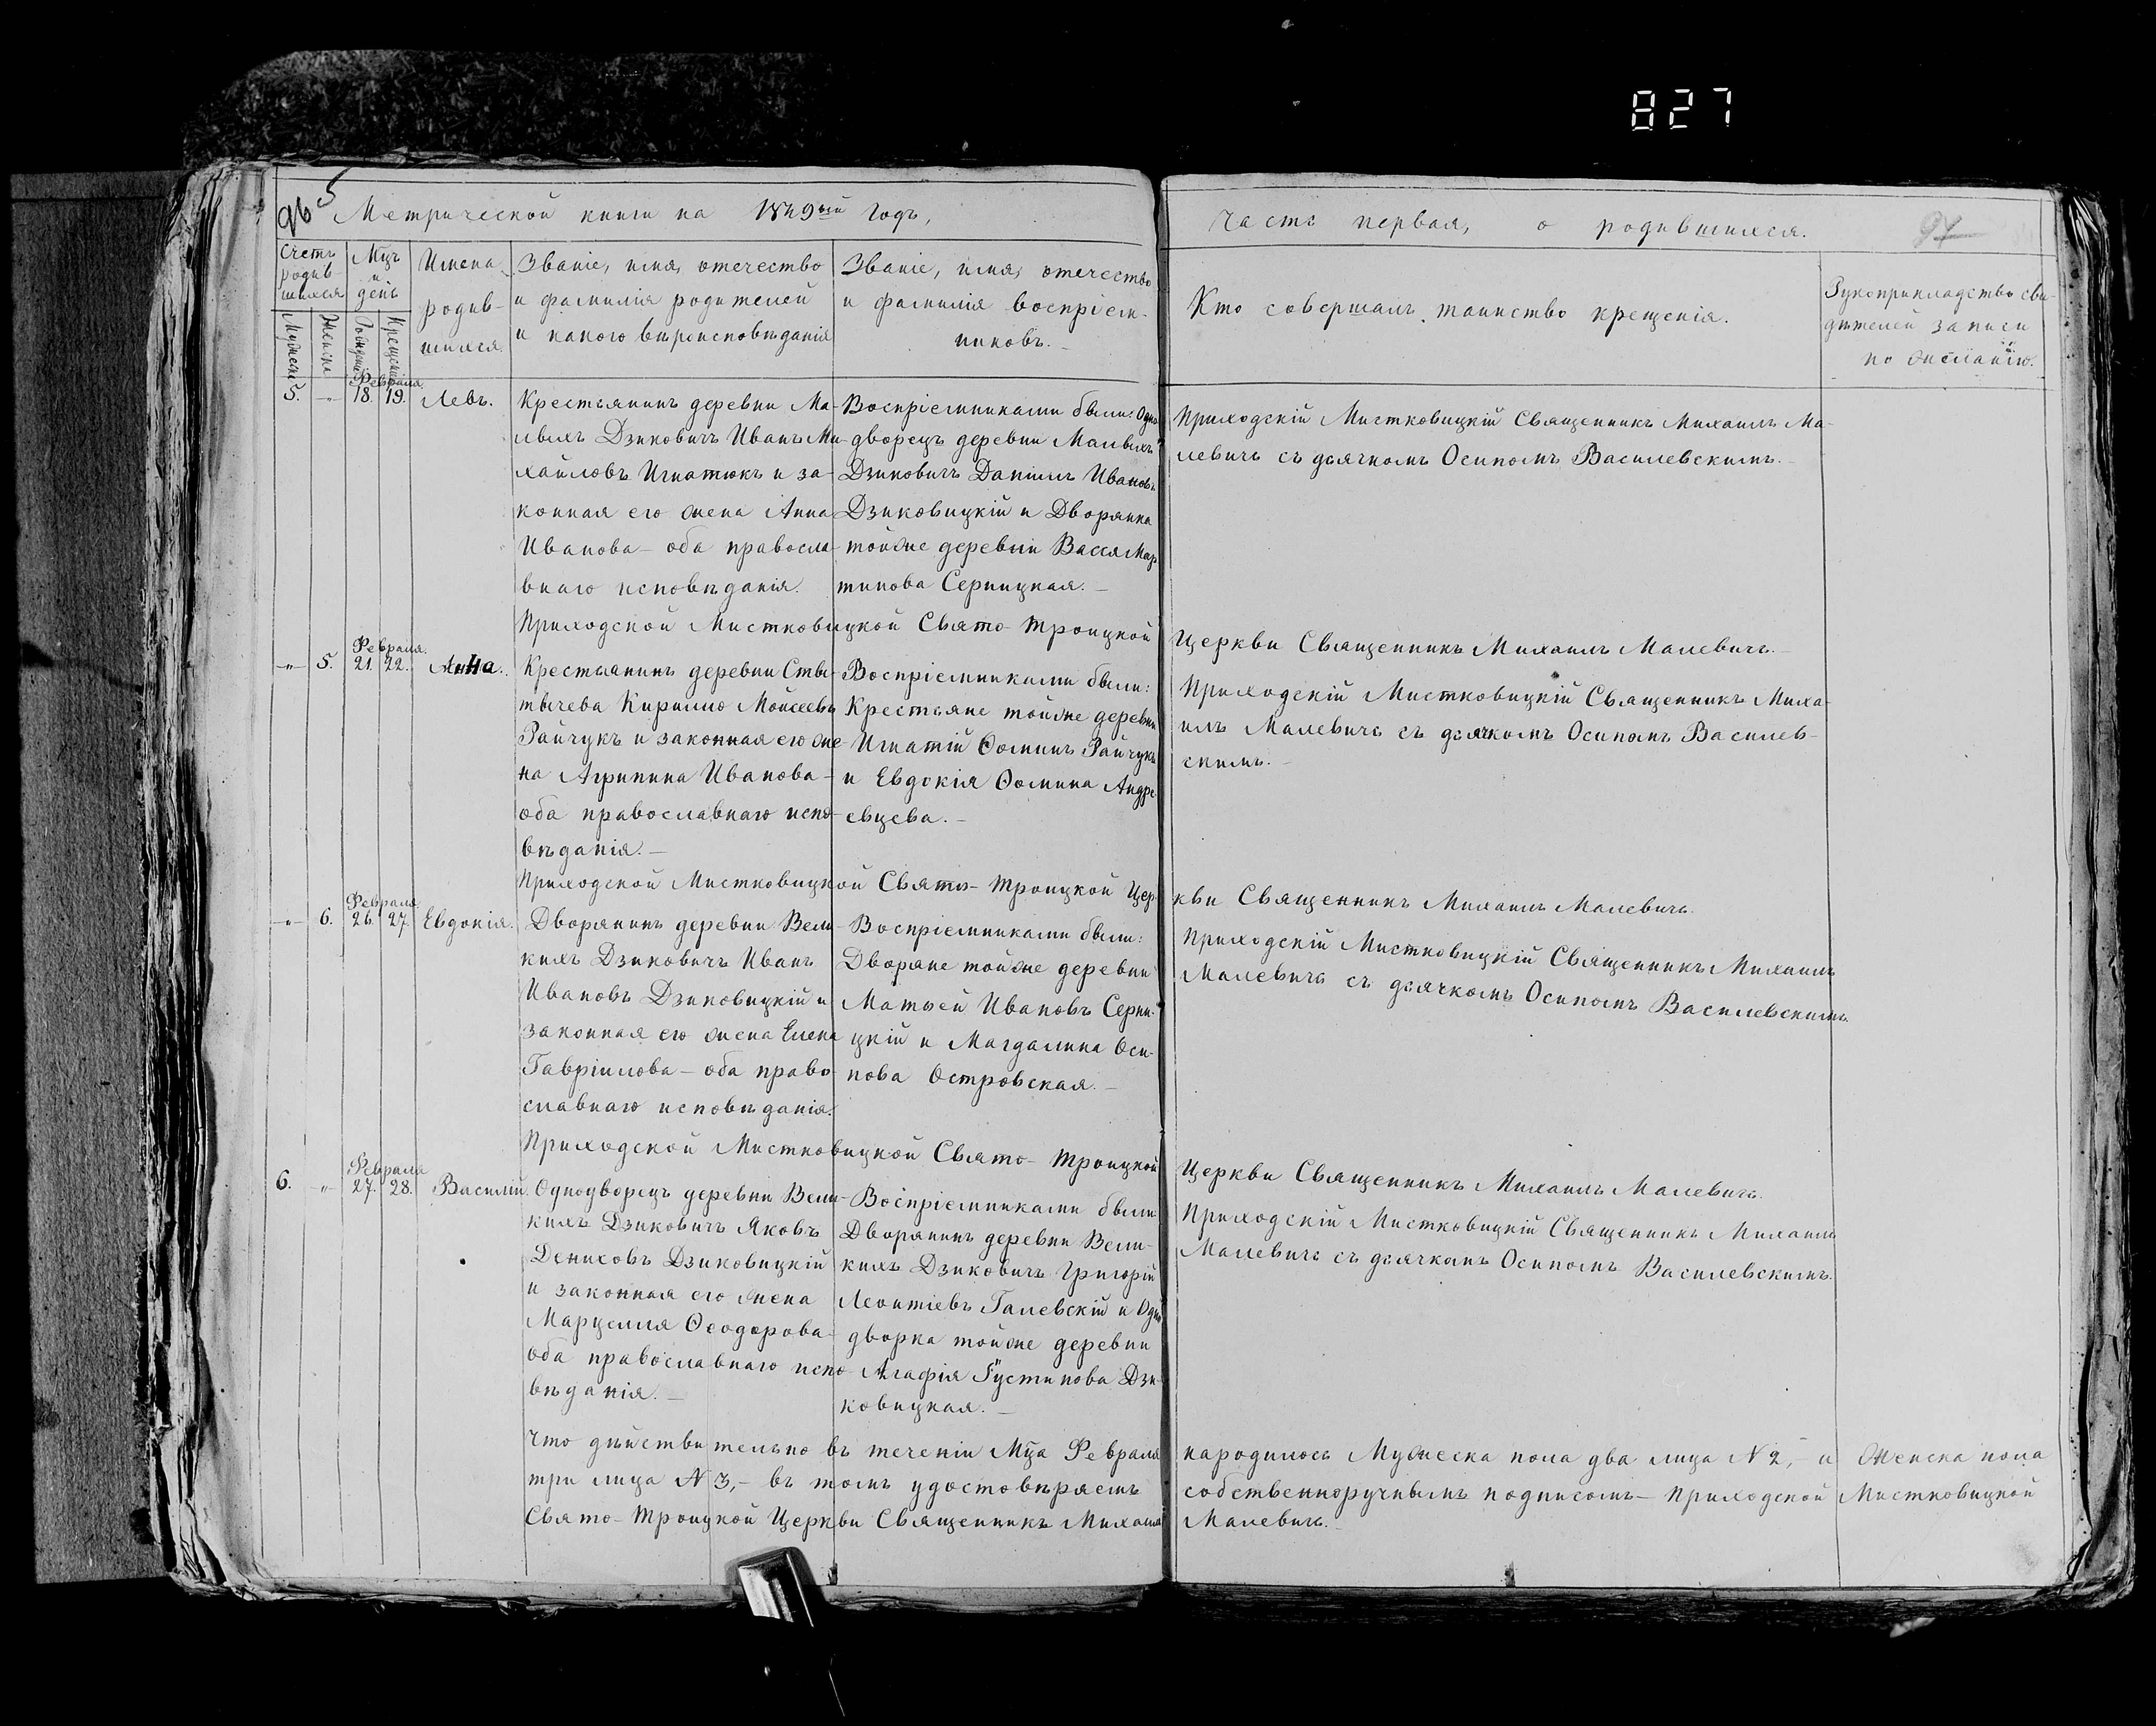 827
96 5 Метрической книги на 1849ый годъ,
Часть первая, о родившихся.
Счетъ родив-шихся
Мужеска
Женска
Мцъ и день
Рожденія
Крещенія
Имена родив-шихся.
Званіе, имя, отечество
и фамилія родителей
и какого вѣроисповѣданія
Званіе, имя, отечество
и фамилія воспріем-
никовъ.
Кто совершалъ таинство крещенія.
Рукоприкладство сви-
дѣтелей записи
по желанію.
5. -„- Февраля 18. 19. Левъ.
Крестьянинъ деревни Ма-
лыхъ Дзиковичъ Иванъ Ми-
хайловъ Игнатюкъ и за-
конная его жена Анна
Иванова - оба правосла-
внаго исповѣданія.
Воспріемниками были: Одно-
дворецъ деревни Малыхъ
Дзиковичъ Даніилъ Ивановъ
Дзиковицкій и Дворянка
тойже деревни Васса Мар-
тинова Серницкая. -
Приходскій Мистковицкій Священникъ Михаилъ Ма-
левичъ съ дьячкомъ Осипомъ Василевскимъ. -
Приходской Мистковицкой Свято-Троицкой Церкви Священникъ Михаилъ Малевичъ. -
-„- 5. Февраля 21. 22. Анна.
Крестьянинъ деревни Ства-
тычева Кирилло Мойсеевъ
Райчукъ и законная его же-
на Агрипина Иванова -
оба православнаго испо-
вѣданія. -
Воспріемниками были:
Крестьяне тойже деревни
Игнатій Ѳоминъ Райчукъ
и Евдокія Ѳомина Андре-
евцева. -
Приходскій Мистковицкій Священникъ Миха-
илъ Малевичъ съ дьячкомъ Осипомъ Василев-
скимъ. -
Приходской Мистковицкой Свято-Троицкой Цер-
кви Священникъ Михаилъ Малевичъ.
-„- 6. Февраля 26. 27. Евдокія.
Дворянинъ деревни Вели-
кихъ Дзиковичъ Иванъ
Ивановъ Дзиковицкій и
законная его жена Елена
Гавріилова - оба право-
славнаго исповѣданія.
Воспріемниками были:
Дворяне тойже деревни
Матѳей Ивановъ Серни-
цкій и Магдалина Оси-
пова Островская. -
Приходскій Мистковицкій Священникъ Михаилъ
Малевичъ съ дьячкомъ Осипомъ Василевскимъ.
Приходской Мистковицкой Свято-Троицкой Церкви Священникъ Михаилъ Малевичъ.
6. -„- Февраля 27. 28. Василій.
Однодворецъ деревни Вели-
кихъ Дзиковичъ Яковъ
Денисовъ Дзиковицкій
и законная его жена
Марцелля Ѳеодорова -
оба православнаго испо-
вѣданія. -
Воспріемниками были:
Дворянинъ деревни Вели-
кихъ Дзиковичъ Григорій
Леонтіевъ Галевскій и Одно-
дворка тойже деревни
Агафія Густинова Дзи-
ковицкая. -
Приходскій Мистковицкій Священникъ Михаилъ
Малевичъ съ дьячкомъ Осипомъ Василевскимъ.
Что дѣйствительно въ теченіи Мца Февраля народилось Мужеска пола два лица N 2, - и Женска пола
три лица N 3, - въ томъ удостовѣряемъ собственноручнымъ подписомъ - Приходской Мистковицкой
Свято-Троицкой Церкви Священникъ Михаилъ Малевичъ. -